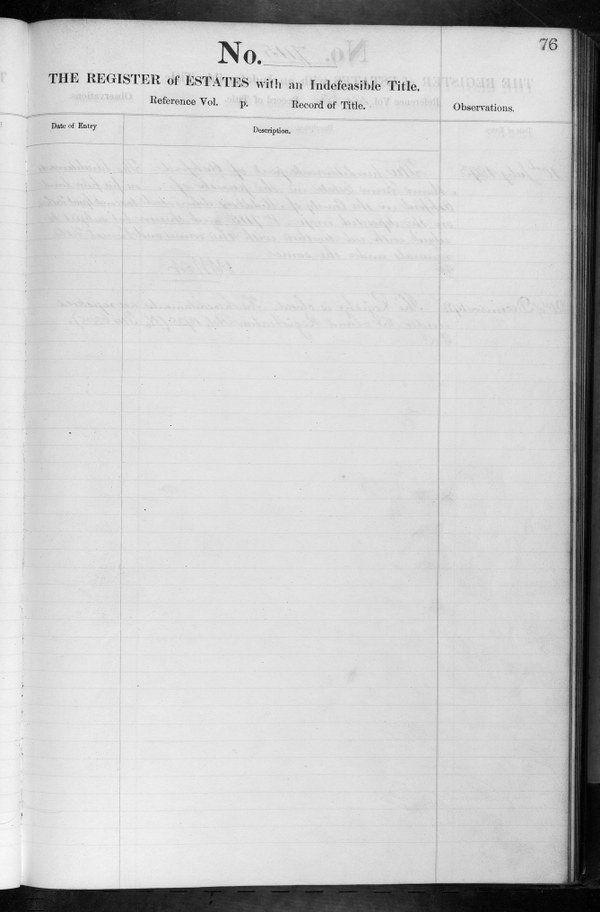 76
No.
THE REGISTER of ESTATES with an Indefeasible Title.
Reference Vol. p. Record of Title.
Observations.
Date of Entry
Description.